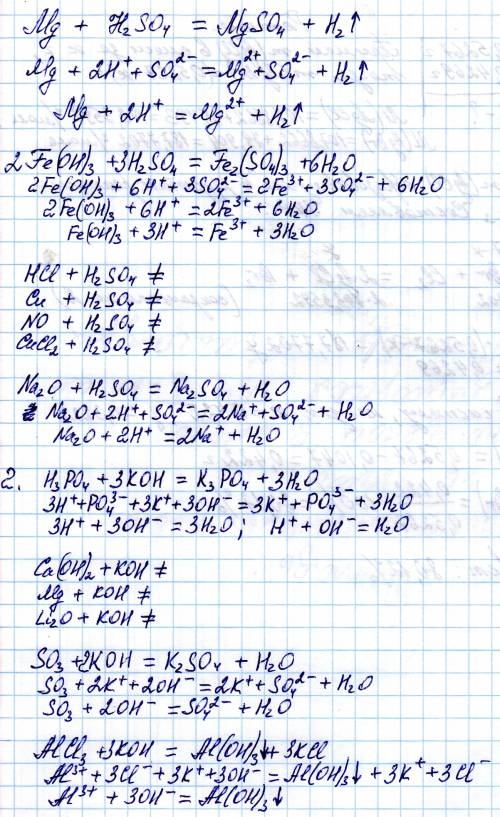 Mg + H₂SO₄ = MgSO₄ + H₂↑
Mg + 2H⁺ + SO₄²⁻ = Mg²⁺ + SO₄²⁻ + H₂↑
Mg + 2H⁺ = Mg²⁺ + H₂↑
2Fe(OH)₃ + 3H₂SO₄ = Fe₂(SO₄)₃ + 6H₂O
2Fe(OH)₃ + 6H⁺ + 3SO₄²⁻ = 2Fe³⁺ + 3SO₄²⁻ + 6H₂O
2Fe(OH)₃ + 6H⁺ = 2Fe³⁺ + 6H₂O
Fe(OH)₃ + 3H⁺ = Fe³⁺ + 3H₂O
HCl + H₂SO₄ ≠
Cu + H₂SO₄ ≠
NO + H₂SO₄ ≠
CuCl₂ + H₂SO₄ ≠
Na₂O + H₂SO₄ = Na₂SO₄ + H₂O
Na₂O + 2H⁺ + SO₄²⁻ = 2Na⁺ + SO₄²⁻ + H₂O
Na₂O + 2H⁺ = 2Na⁺ + H₂O
2. H₃PO₄ + 3KOH = K₃PO₄ + 3H₂O
3H⁺ + PO₄³⁻ + 3K⁺ + 3OH⁻ = 3K⁺ + PO₄³⁻ + 3H₂O
3H⁺ + 3OH⁻ = 3H₂O; H⁺ + OH⁻ = H₂O
Ca(OH)₂ + KOH ≠
Mg + KOH ≠
Li₂O + KOH ≠
SO₃ + 2KOH = K₂SO₄ + H₂O
SO₃ + 2K⁺ + 2OH⁻ = 2K⁺ + SO₄²⁻ + H₂O
SO₃ + 2OH⁻ = SO₄²⁻ + H₂O
AlCl₃ + 3KOH = Al(OH)₃↓ + 3KCl
Al³⁺ + 3Cl⁻ + 3K⁺ + 3OH⁻ = Al(OH)₃↓ + 3K⁺ + 3Cl⁻
Al³⁺ + 3OH⁻ = Al(OH)₃↓